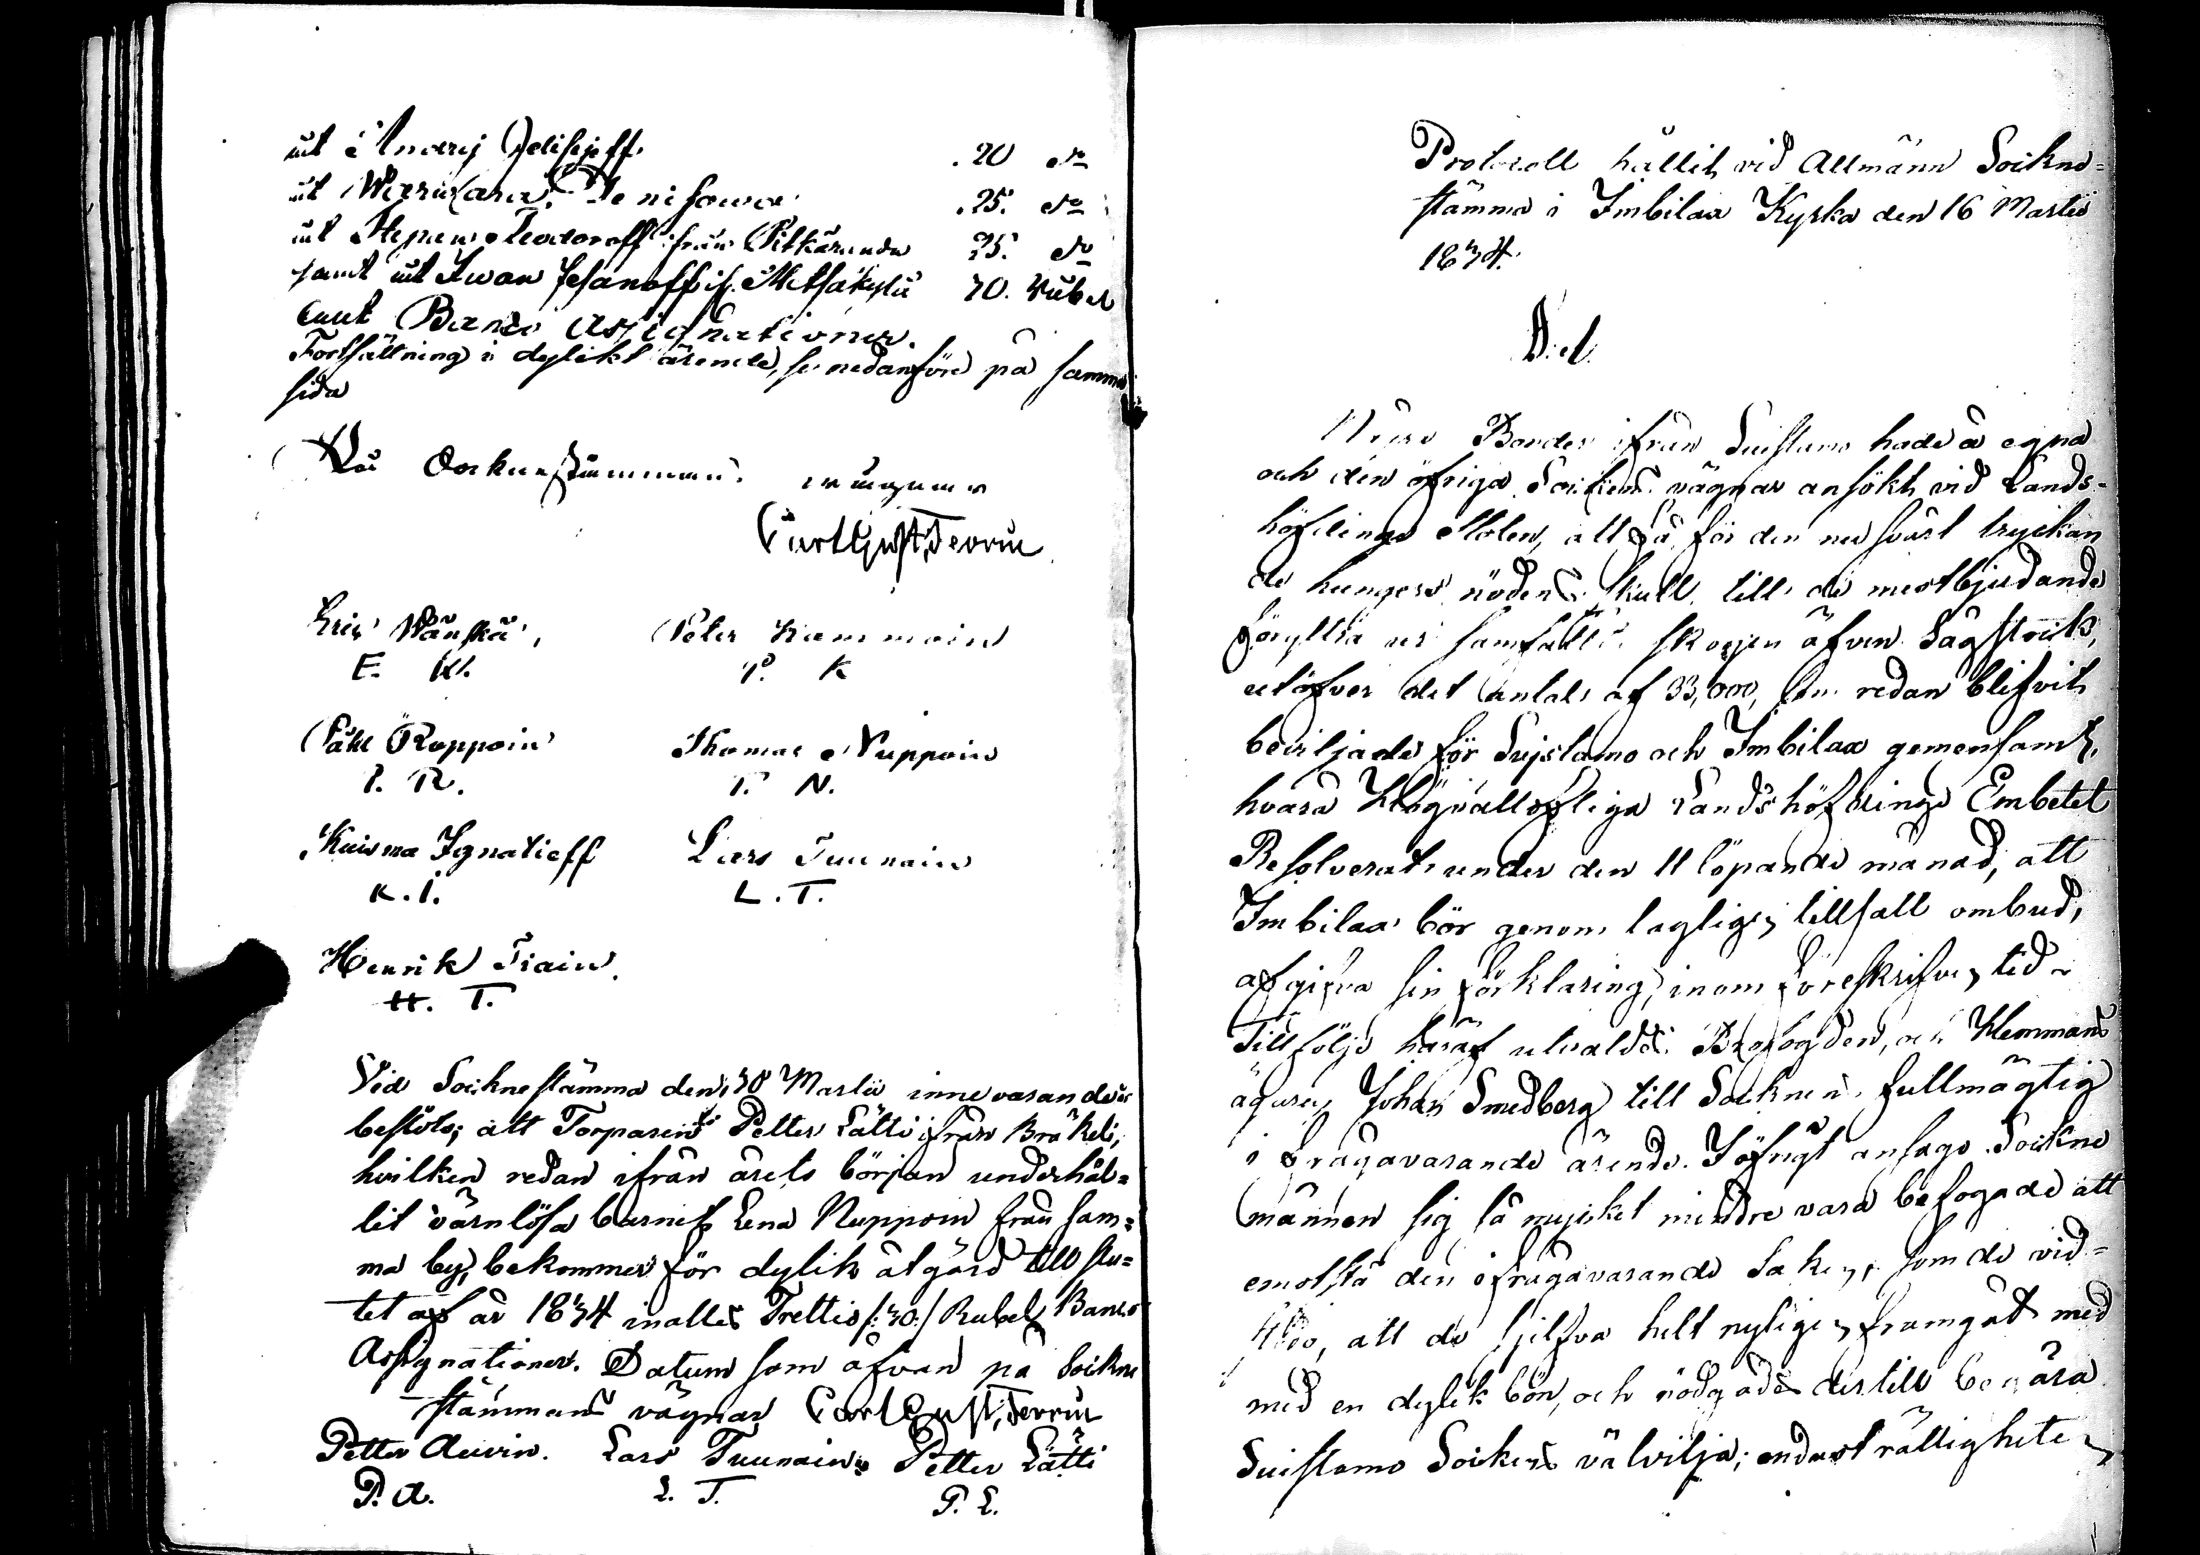 åt Andrej Jelisejeff. 20 do
åt Denisowa 25. do
åt Stepan Feodoroff från Pitkäranda 25. do
samt åt Iwan if. Metsäkylä 70. Rubel
allt Banco Assignationer.
Fortsättning i dylikt ärende, se nedanföre på samma
sida
På Sockenstämmans vägnar
Carl Gust. Terrin
Eric Wänskä, Peter Hammoin
E. W. P. K
Påhl Roppoin Thomas Nuppoin
P. R. T. N.
Kuisma Ignatieff Lars Tuunain
K. I. L. T.
Henrik Tiain.
H. T.
Vid Socknestämma den 30 Martii innevarande år
beslöts; att Torparen Petter Lätti ifrån
hvilken redan ifrån årets början underhål=
lit värnlösa barnet Lena Nuppoin från sam=
ma by, bekommer för dylik åtgärd till slu=
tet af år 1834 inalles Trettio /:30:/ Rubel Banco
Assignationer. Datum som ofvan på Sockne
stämmans vägnar Carl Gust. Terrin
Petter Auvin. Lars Tuunain Petter Lätti
P. A. L. T. P. L.
Protocoll hållit vid Allmänn Sockne=
stämma i Imbilax Kyrka den 16 Martii
1834.
Bönder ifrån Suistamo hade å egna
och den öfriga Sockens vägnar ansökt vid Lands=
höfdinge Stolen, att få för den nu svårt tryckan
de hungers nödens skull till de mestbjudande
föryttra ur samfälte skogen äfven Sågstock,
utöfver det antal af 33,000, som redan blifvit
beviljade för Suistamo och Imbilax gemensamt,
hvarå Högvällofliga Landshöfdinge Embetet
Resolverat under den 11 löpande månad, att
Imbilax bör genom lagligen tillsatt ombud,
afgifva sin förklaring, inom föreskrifven tid.
Till följe häraf utvaldes och Hemmans
ägaren Johan Smedberg till Socknens fullmägtig
i frågavarande ärende. I öfrigt ansågo Sockne
männen sig så mycket mindre vara befogade att
emotstå den i frågavarande saken, som de vid=
att de sjelfva helt nyligen framgått med
med en dylik bön, och nödgades dertill begära
Suistamo Sockens välvilja; endast rättigheten